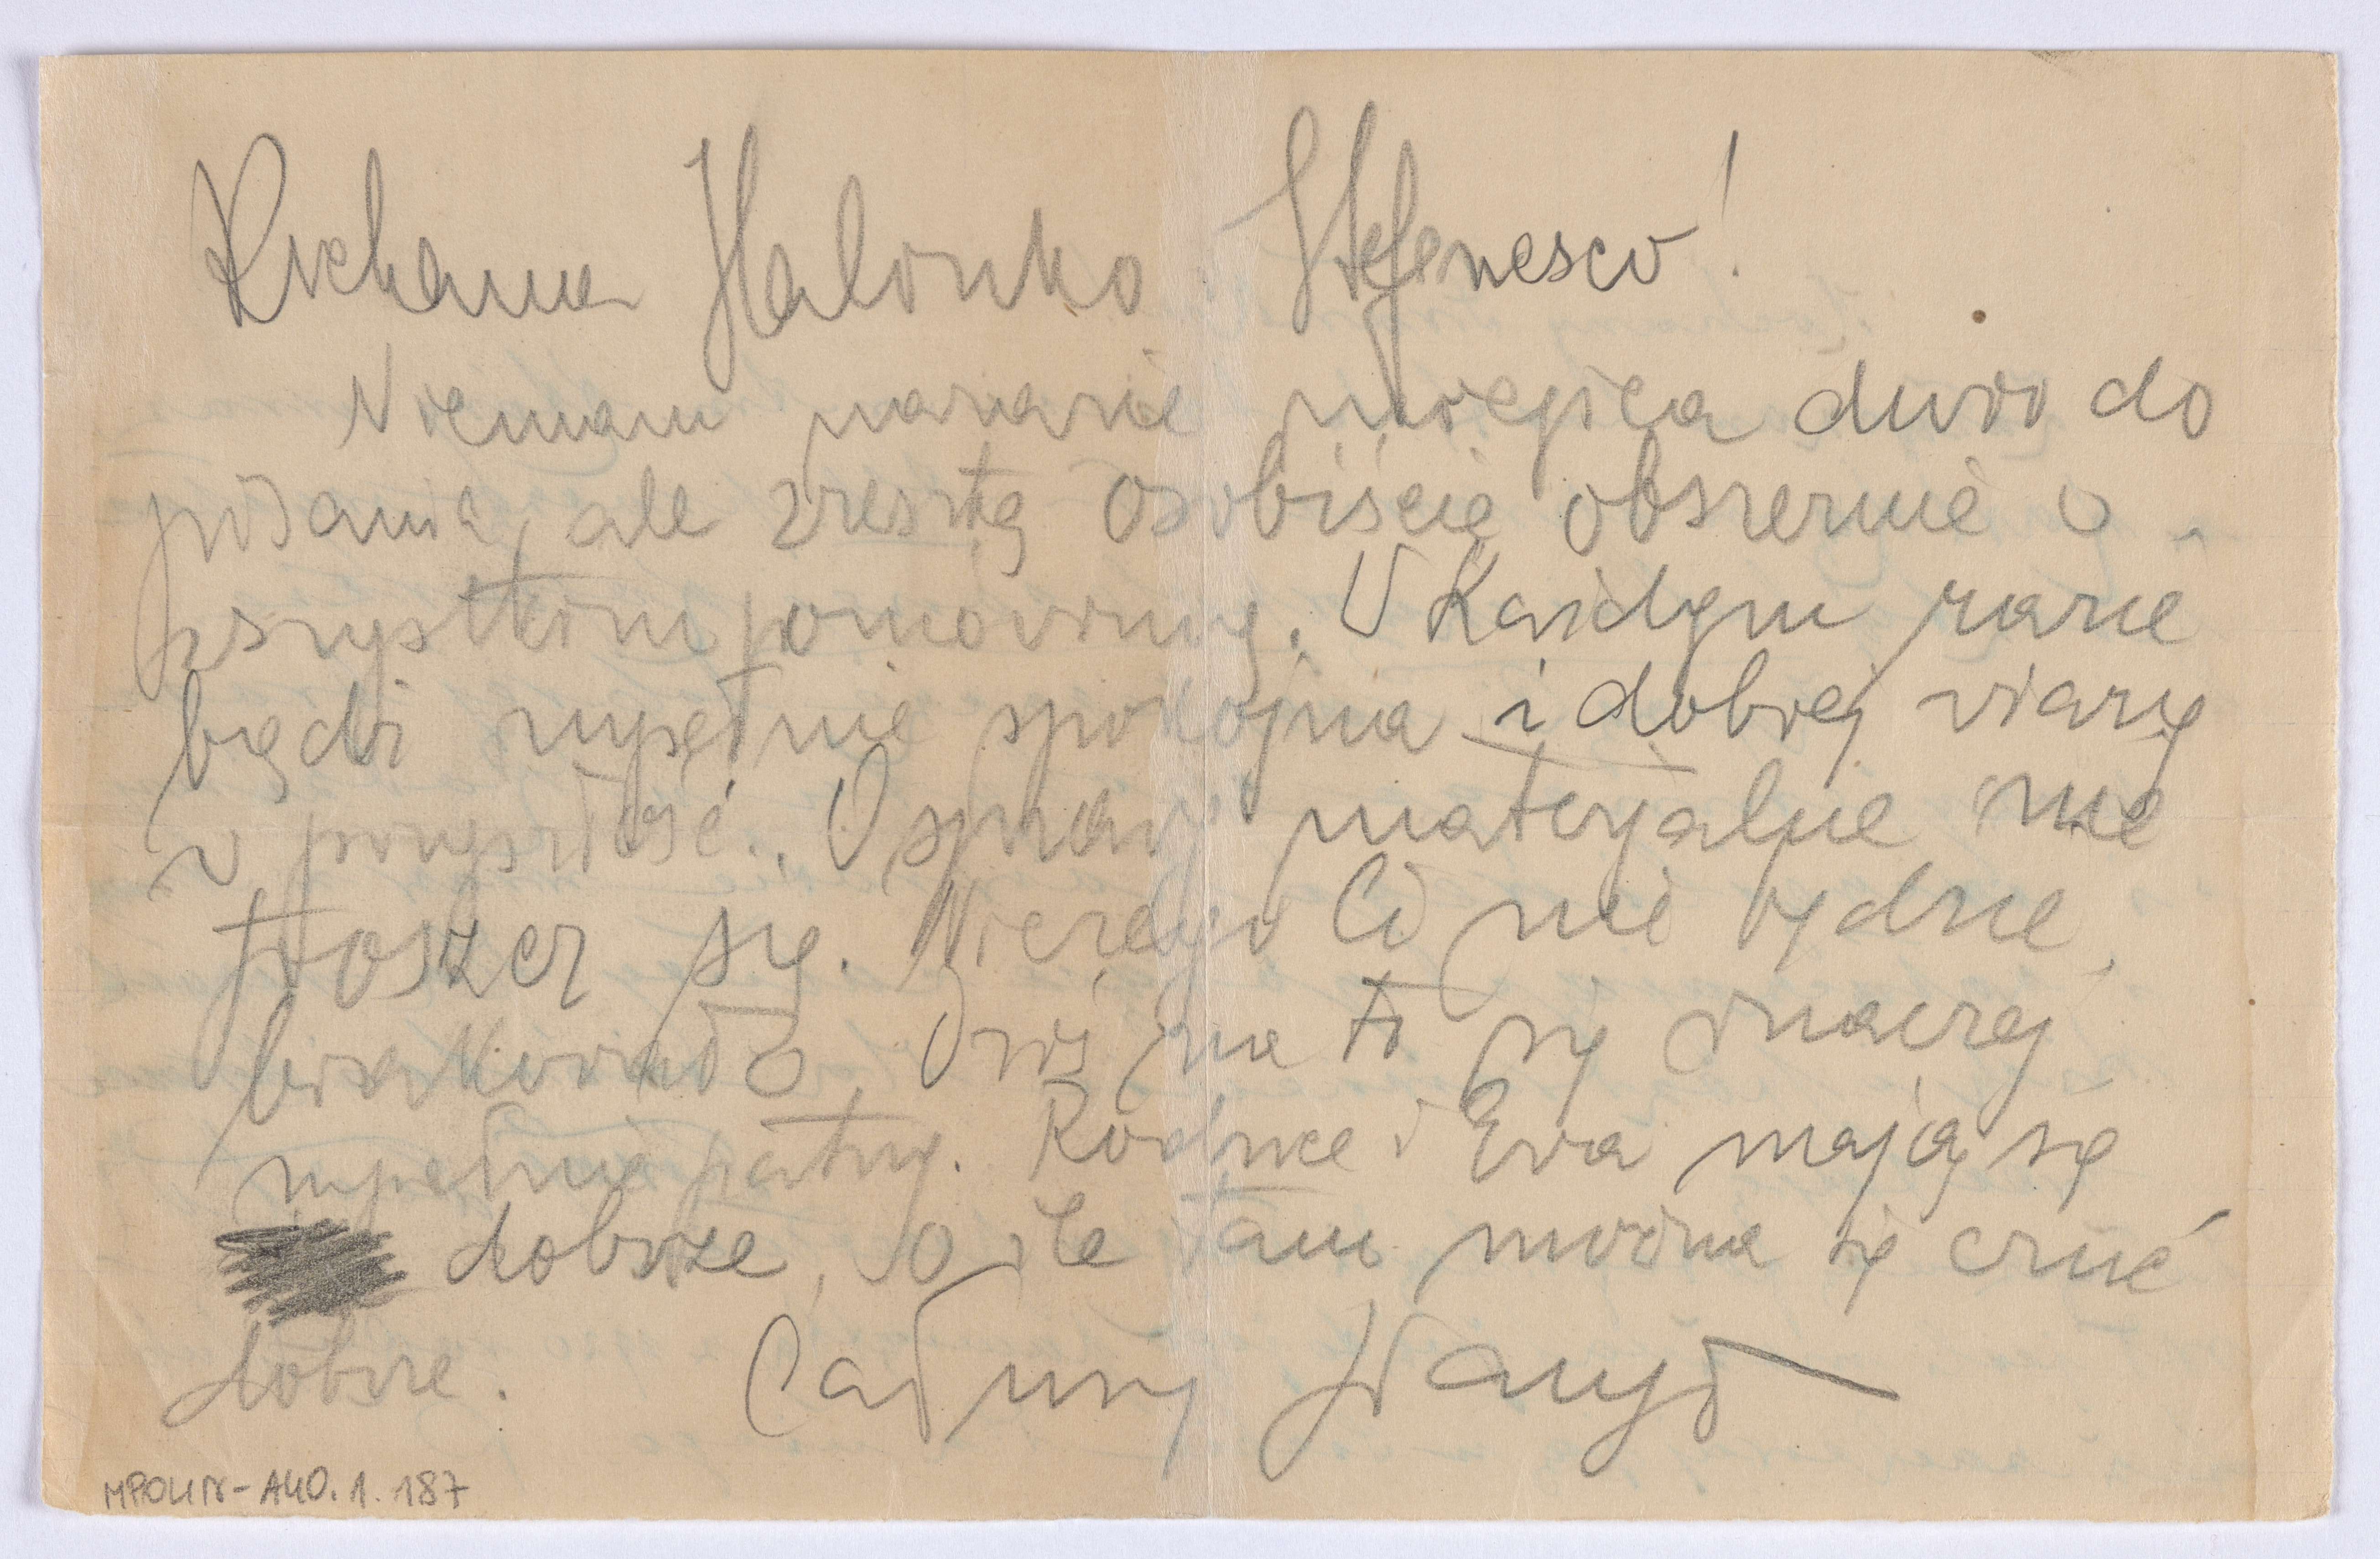 Kochana Halonko Stefanesco!
Niemam narazie miejsca dużo do
pisania, ale zresztą osobiście obszernie o
wszystkim pomówimy. W Każdym razie
bądź zupełnie spokojna i dobrej wiary
w przyszłość. O sprawy materjalne nie
troszcz się. Niczego Ci nie będzie,
brakowało. Oziś ma to się inaczej
zupełnie patrzy. Rodzice i Ewa mają się
dobrze, o ile tam można się czuć
dobrze. Całuny
MPOLIN-A40.1.187